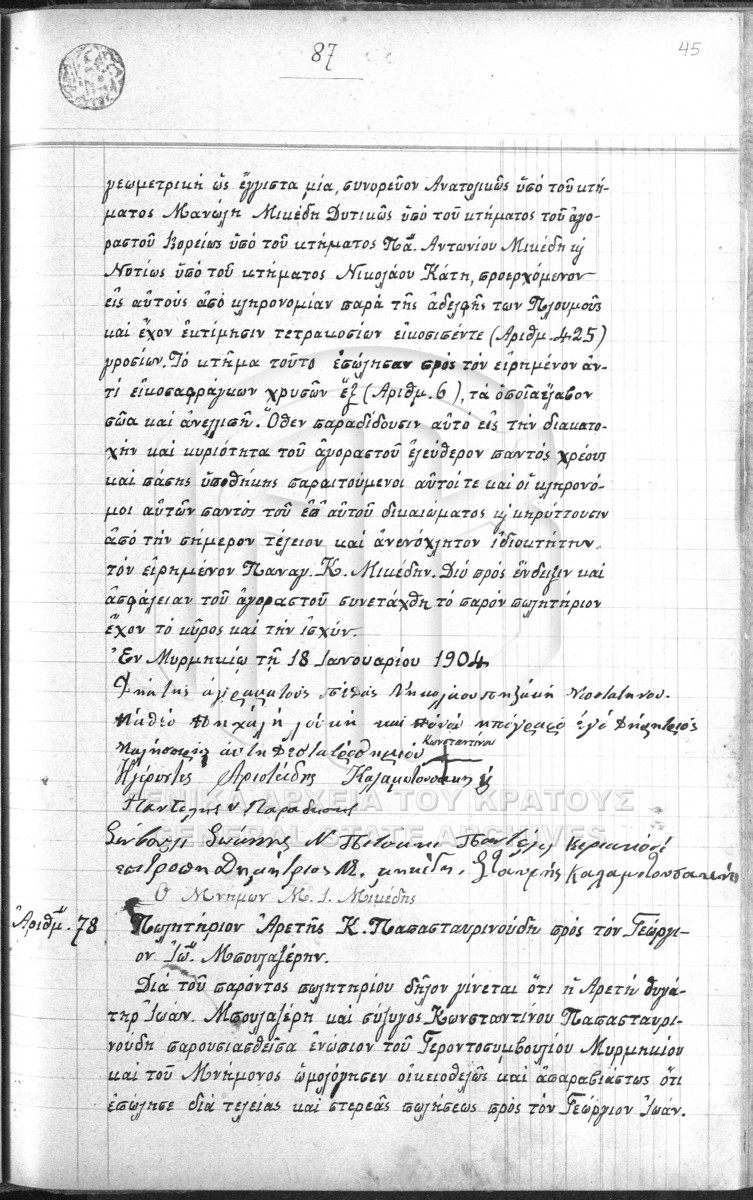 87
45
γεωμετρικὴ ὡς ἔγγιστα μία, συνορεῦον Ἀνατολικῶς ὑπὸ τοῦ κτή-
ματος Μανώλη Μικέδη Δυτικῶς ὑπὸ τοῦ κτήματος τοῦ ἀγο-
ραστοῦ Βορείως ὑπὸ τοῦ κτήματος Πᾶ. Ἀντωνίου Μικέδη κ
Νοτίως ὑπὸ τοῦ κτήματος Νικολάου Κάτη, προερχόμενον
εἰς αὐτοὺς ἀπὸ κληρονομίαν παρὰ τῆς ἀδελφῆς των Πλουμοῦς
καὶ ἔχον ἐκτίμησιν τετρακοσίων εἰκοσιπέντε (Ἀριθμ. 425)
γροσίων. Τὸ κτῆμα τοῦτο ἐπώλησαν πρὸς τὸν εἰρημένον ἀν-
τὶ εἰκοσαφράγκων χρυσῶν ἕξ (Ἀριθμ. 6), τὰ ὁποῖα ἔλαβον
σῶα καὶ ἀνελλιπῆ. Ὅθεν παραδίδουσιν αὐτὸ εἰς τὴν διακατο-
χὴν καὶ κυριότητα τοῦ ἀγοραστοῦ ἐλεύθερον παντὸς χρέους
καὶ πάσης ὑποθήκης παραιτούμενοι αὐτοί τε καὶ οἱ κληρονό-
μοι αὐτῶν παντὸς τοῦ ἐπ' αὐτοῦ δικαιώματος κ κηρύττουσιν
ἀπὸ τὴν σήμερον τέλειον καὶ ἀνενόχλητον ἰδιοκτήτην
τὸν εἰρημένον Παναγ. Κ. Μικέδην. Διὸ πρὸς ἔνδειξιν καὶ
ἀσφάλειαν τοῦ ἀγοραστοῦ συνετάχθη τὸ παρὸν πωλητήριον
ἔχον τὸ κῦρος καὶ τὴν ἰσχύν.
Ἐν Μυρμηκίῳ τῇ 18 Ιανουαρίου 1904
ἀγραματους Νηκολαου
καὶ ηπόγραφο ἐγὸ Δημητριος
Κωνσταντίνου
Ἡ γέροντες Αριστείδης Καλαμωτουσάκη κ
Παντελης Παραδισης
Συνβουλι Ιωάννης Ν Πιτακι Παντελης Κεριακού
επιτροπη Δημήτριος Μ. μηκέδη, Σταυρής Καλαμοτουσακη
Ο Μνήμων Μ. Ι. Μικέδης
ΓΕΝΙΚΑ ΑΡΧΕΙΑ ΤΟΥ ΚΡΑΤΟΥΣ
GENERAL STATE ARCHIVES
Ἀριθμ. 78 Πωλητήριον Ἀρετῆς Κ. Παπασταυρινούδη πρὸς τὸν Γεώργι-
ον Ἰω. Μπουλαξέρην.
Διὰ τοῦ παρόντος πωλητηρίου δῆλον γίνεται ὅτι ἡ Ἀρετὴ θυγά-
τηρ Ἰωάν. Μπουλαξέρη καὶ σύζυγος Κωνσταντίνου Παπασταυρι-
νούδη παρουσιασθεῖσα ἐνώπιον τοῦ Γεροντοσυμβουλίου Μυρμηκίου
καὶ τοῦ Μνήμονος ὡμολόγησεν οἰκειοθελῶς καὶ ἀπαραβιάστως ὅτι
ἐπώλησε διὰ τελείας καὶ στερεᾶς πωλήσεως πρὸς τὸν Γεώργιον Ἰωάν.